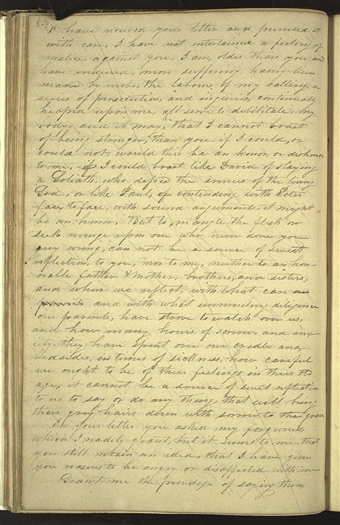 I have received your letter and perused it
with care, I have not entertained a feeling of
malice against you, I am, older than you, and
have endured, more suffering, having been
marred by mobs, the labours of my calling, a
series of persecution, and injuries, continually
heaped upon me, all serve to debilitate my
body, and it may be, that I cannot boast
of being stronger, than you. if I could, or
could not, would this be an honor, or dishonor
to me,- if I could boast like David, of slaying
a Goliath, who defied the armies of the living
God, or like Paul, of contending with Peter
face to face, with sound arguments, it might
be an honor; But to mangle the flesh or
seek revenge upon one who never done you
any wrong, can not be a source of sweet
reflection, to you, nor to me, neither to an hon-
orable father & Mother, brothers, and sisters,
and when we reflect, with what care our
parents and with what unremitting diligence
our parents, have strove to watch over us,
and how many hours of sorrow, and anx
iety, they have spent over our cradles and
bedsides, in times of sickness, how careful
we ought to be of their feelings in their old
age, it cannot be a source of sweet reflection
to us to say or do any thing, that will bring
their grey hairs down with sorrow to the grave
In your letter you asked my forgiveness
which I readily grant, but it seems to me, that
you still retain an idea, that I have given
you reasons to be angry or disaffected with me
Grant me the privilege of saying then,